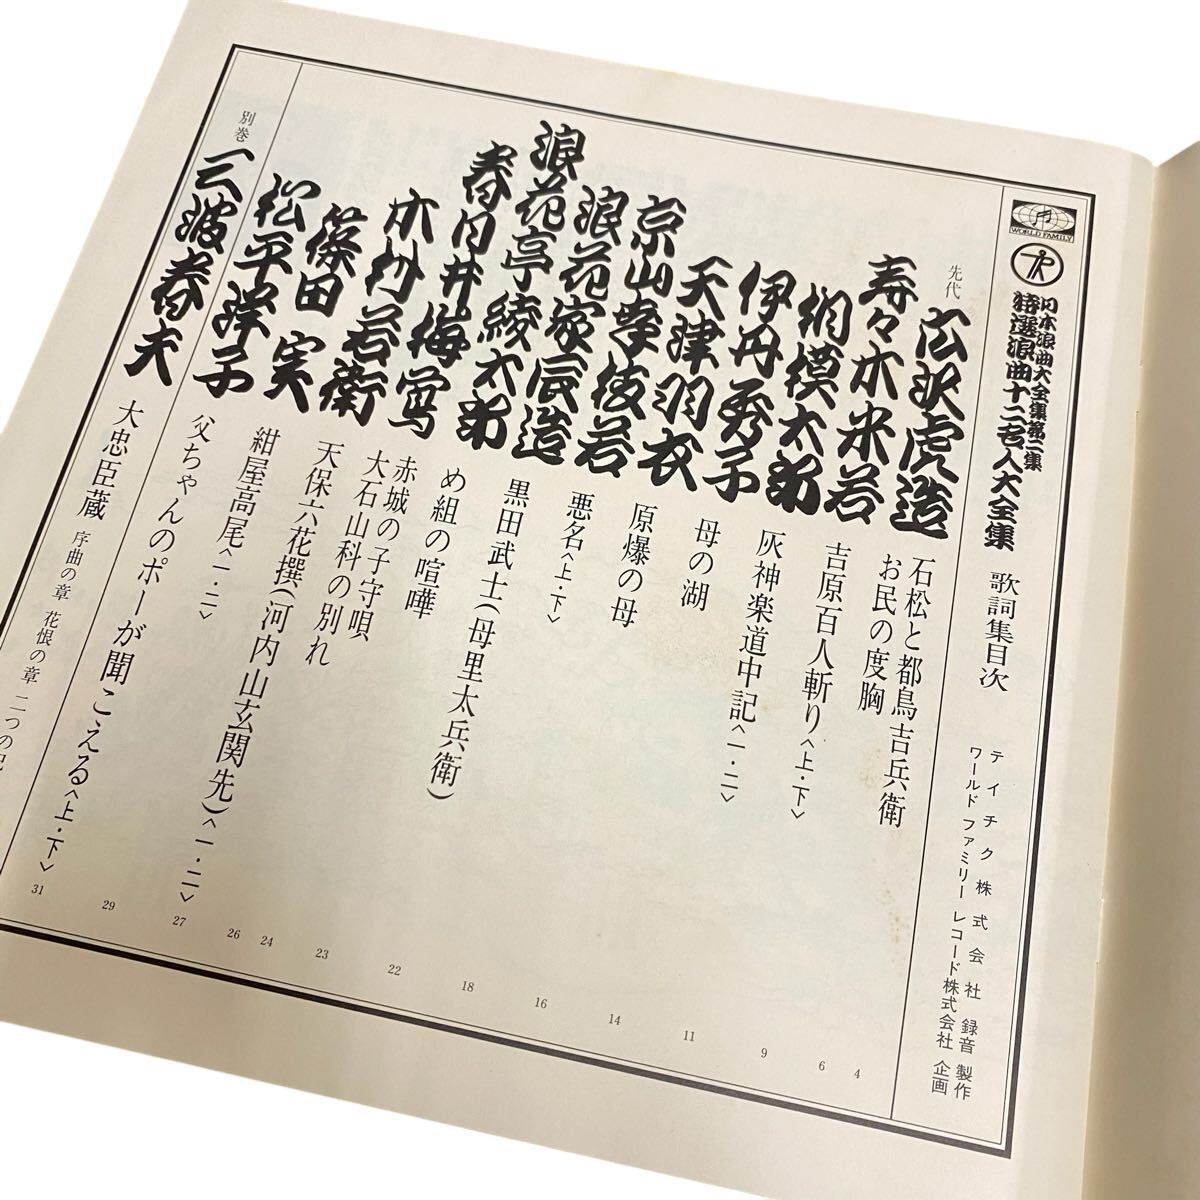 WORLD FAMILY
日本浪曲大全集第二集
特選浪曲十二名人大全集 歌詞集目次
テイチク株式会社 録音 製作
ワールド ファミリー レコード株式会社 企画
先代 広沢虎造
石松と都鳥吉兵衛 4
お民の度胸 6
寿々木米若 吉原百人斬り〈上・下〉 9
相模太郎 灰神楽道中記〈一・二〉 11
伊丹秀子 母の湖 14
天津羽衣 原爆の母 16
京山幸枝若 悪名〈上・下〉 18
浪花家辰造 黒田武士(母里太兵衛) 22
浪花亭綾太郎 め組の喧嘩 23
春日井梅鶯
赤城の子守唄 24
大石山科の別れ 26
木村若衛 天保六花撰(河内山玄関先)〈一・二〉 27
篠田 実 紺屋高尾〈一・二〉 29
松平洋子 父ちゃんのポーが聞こえる〈上・下〉 31
別巻 三波春夫 大忠臣蔵 序曲の章 花恨の章 二つの